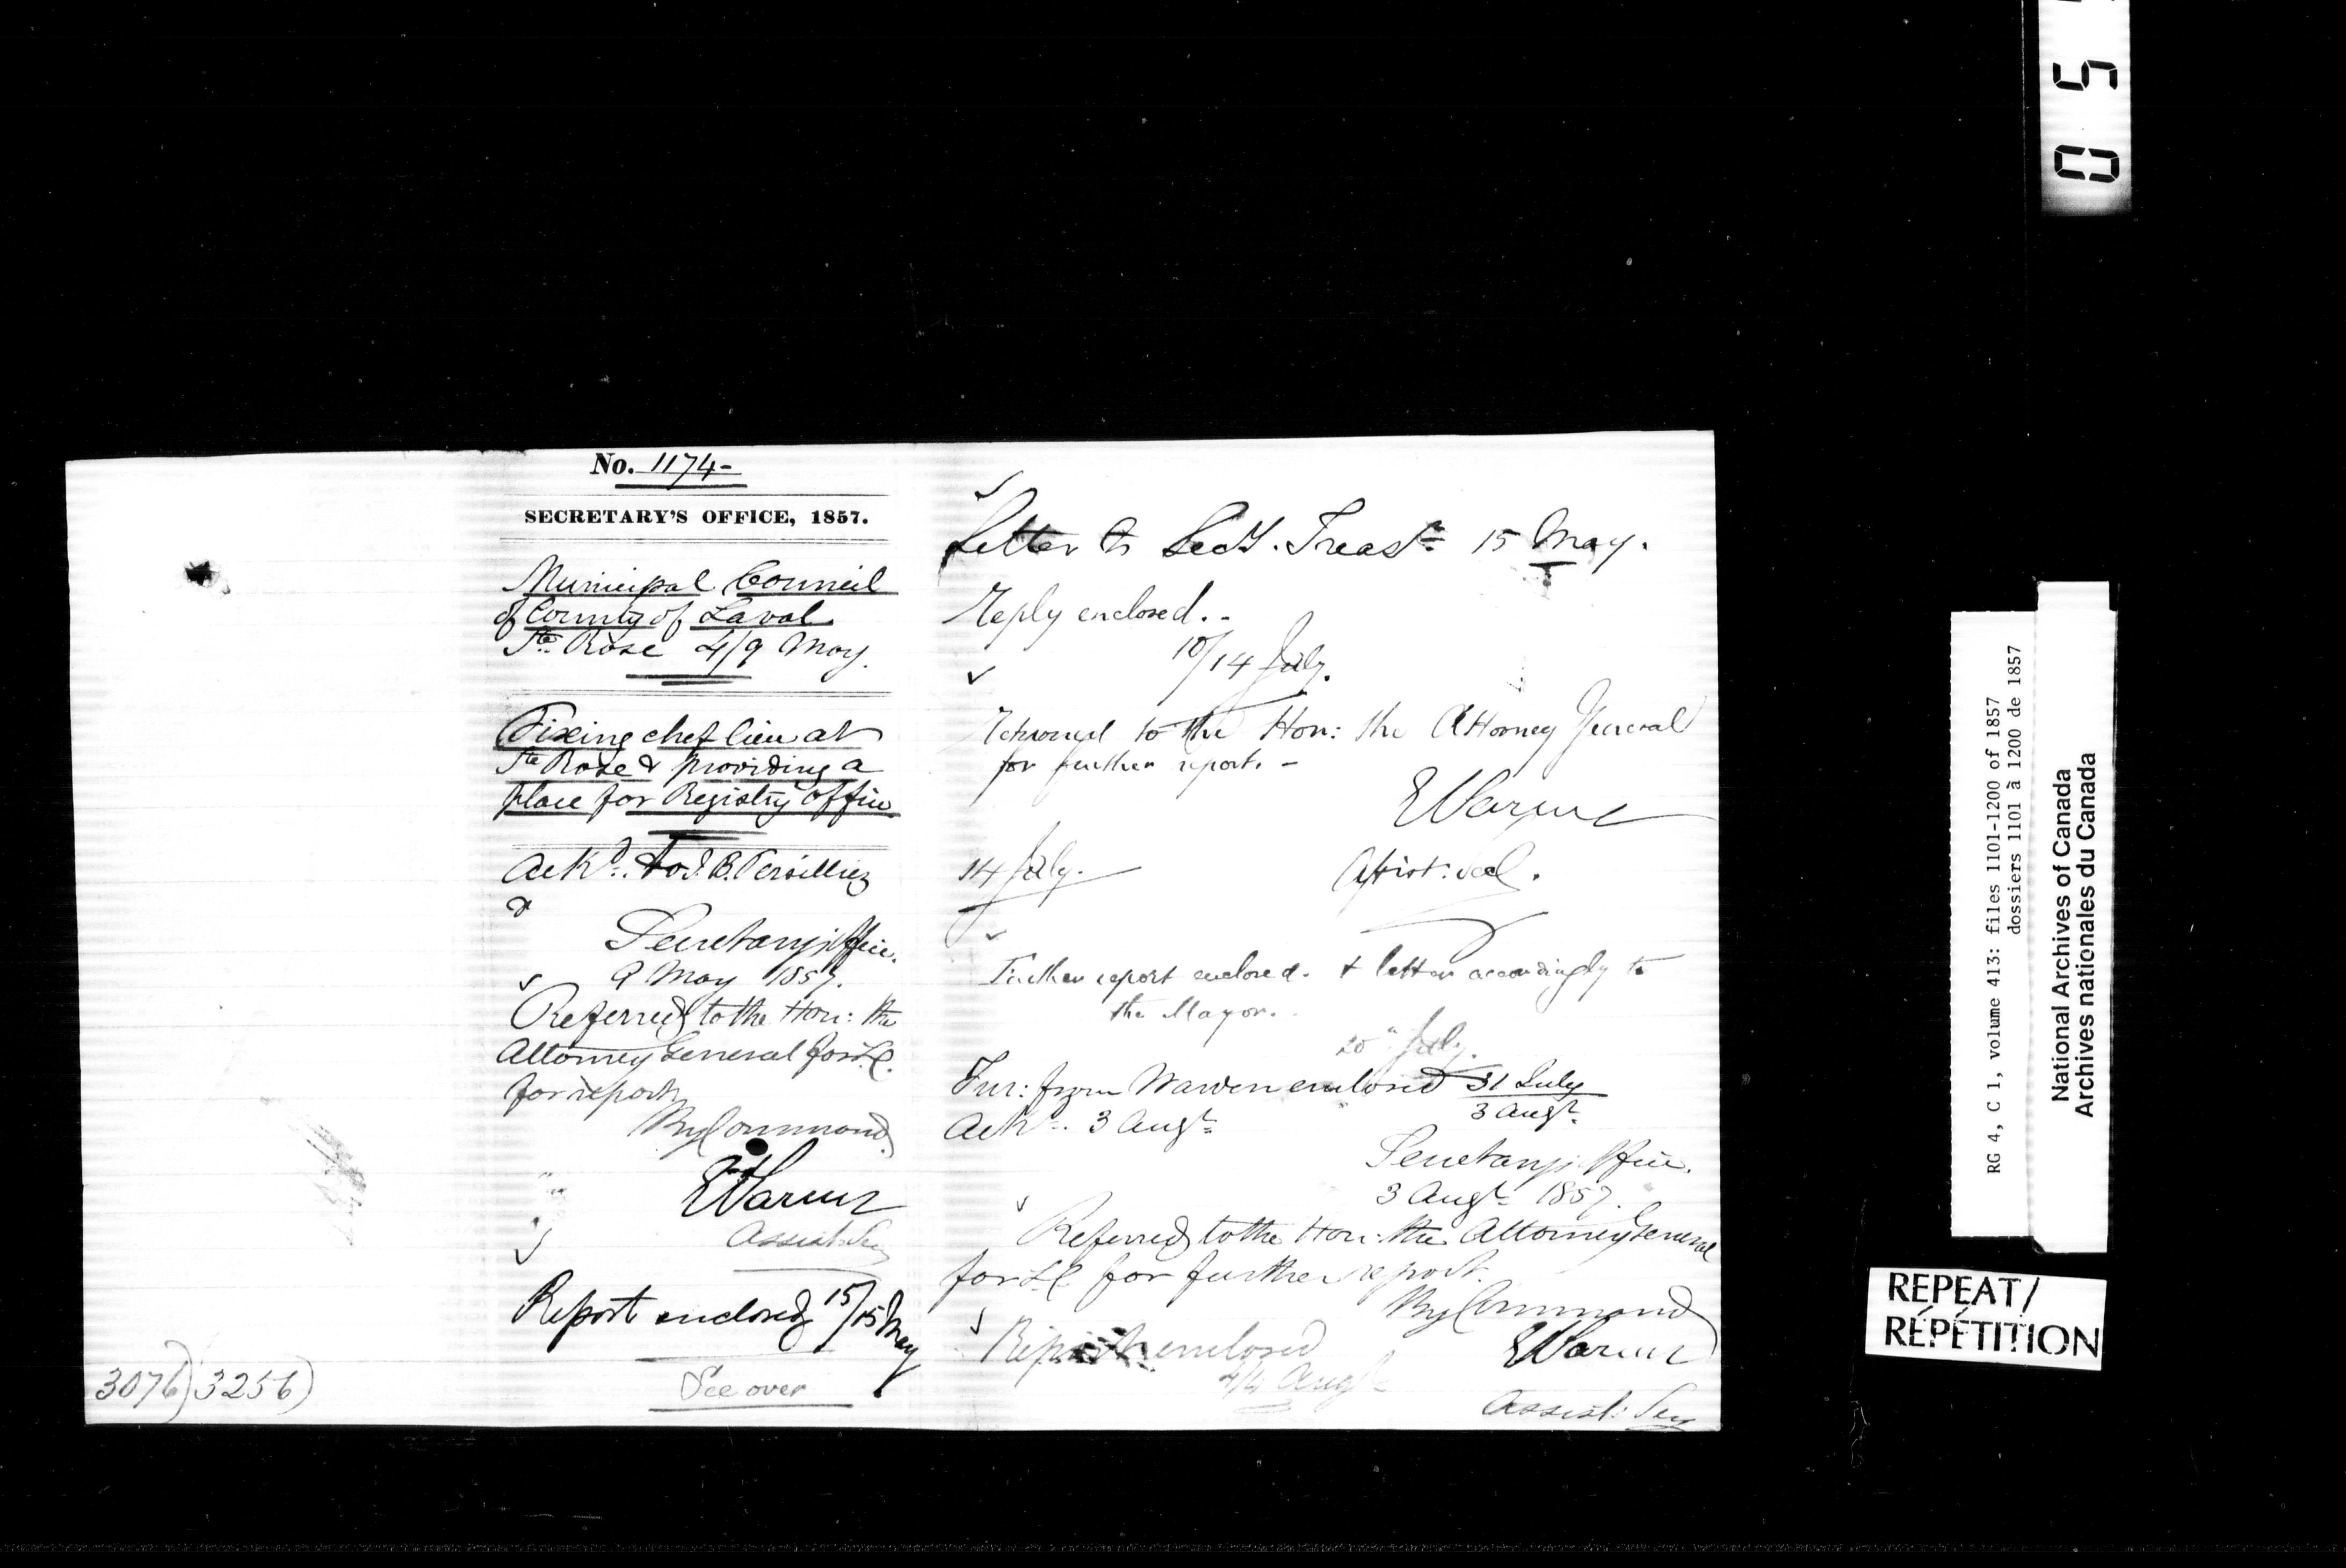 No. 1174-
SECRETARY'S OFFICE, 1857.
Municipal Council
of County of Laval
Ste Rose 4/9 May.
Fixing chef lieu at
Ste Rose & providing a
place for Registry office
Ackd. to J. B.
&
Secretary's Office.
9 May 1857.
Referred to the Hon: the
Attorney General for L.C.
for report
By Command
Assist: Secy
Report enclosed 15/15 May
See over
3076) 3256)
Letter to Secy. Treasr 15 May.
Reply enclosed.
10/14 July.
Returned to the Hon: the Attorney General
for further report. -
Assist: Sec.
14 July.
Further report enclosed. & letter accordingly to
the Mayor.
20" July.
Fur: from Warden enclosed 31 July
3 Augt.
Ackd. 3 Augt
Secretary's Office.
3 Augt 1857.
Referred to the Hon: the Attorney General
for L.C for further report.
By Command
Report enclosed
4/4 Augt
Assist: Secy
0 5
RG 4, C 1, volume 413: files 1101-1200 of 1857
dossiers 1101 à 1200 de 1857
National Archives of Canada
Archives nationales du Canada
REPEAT/
RÉPÉTITION